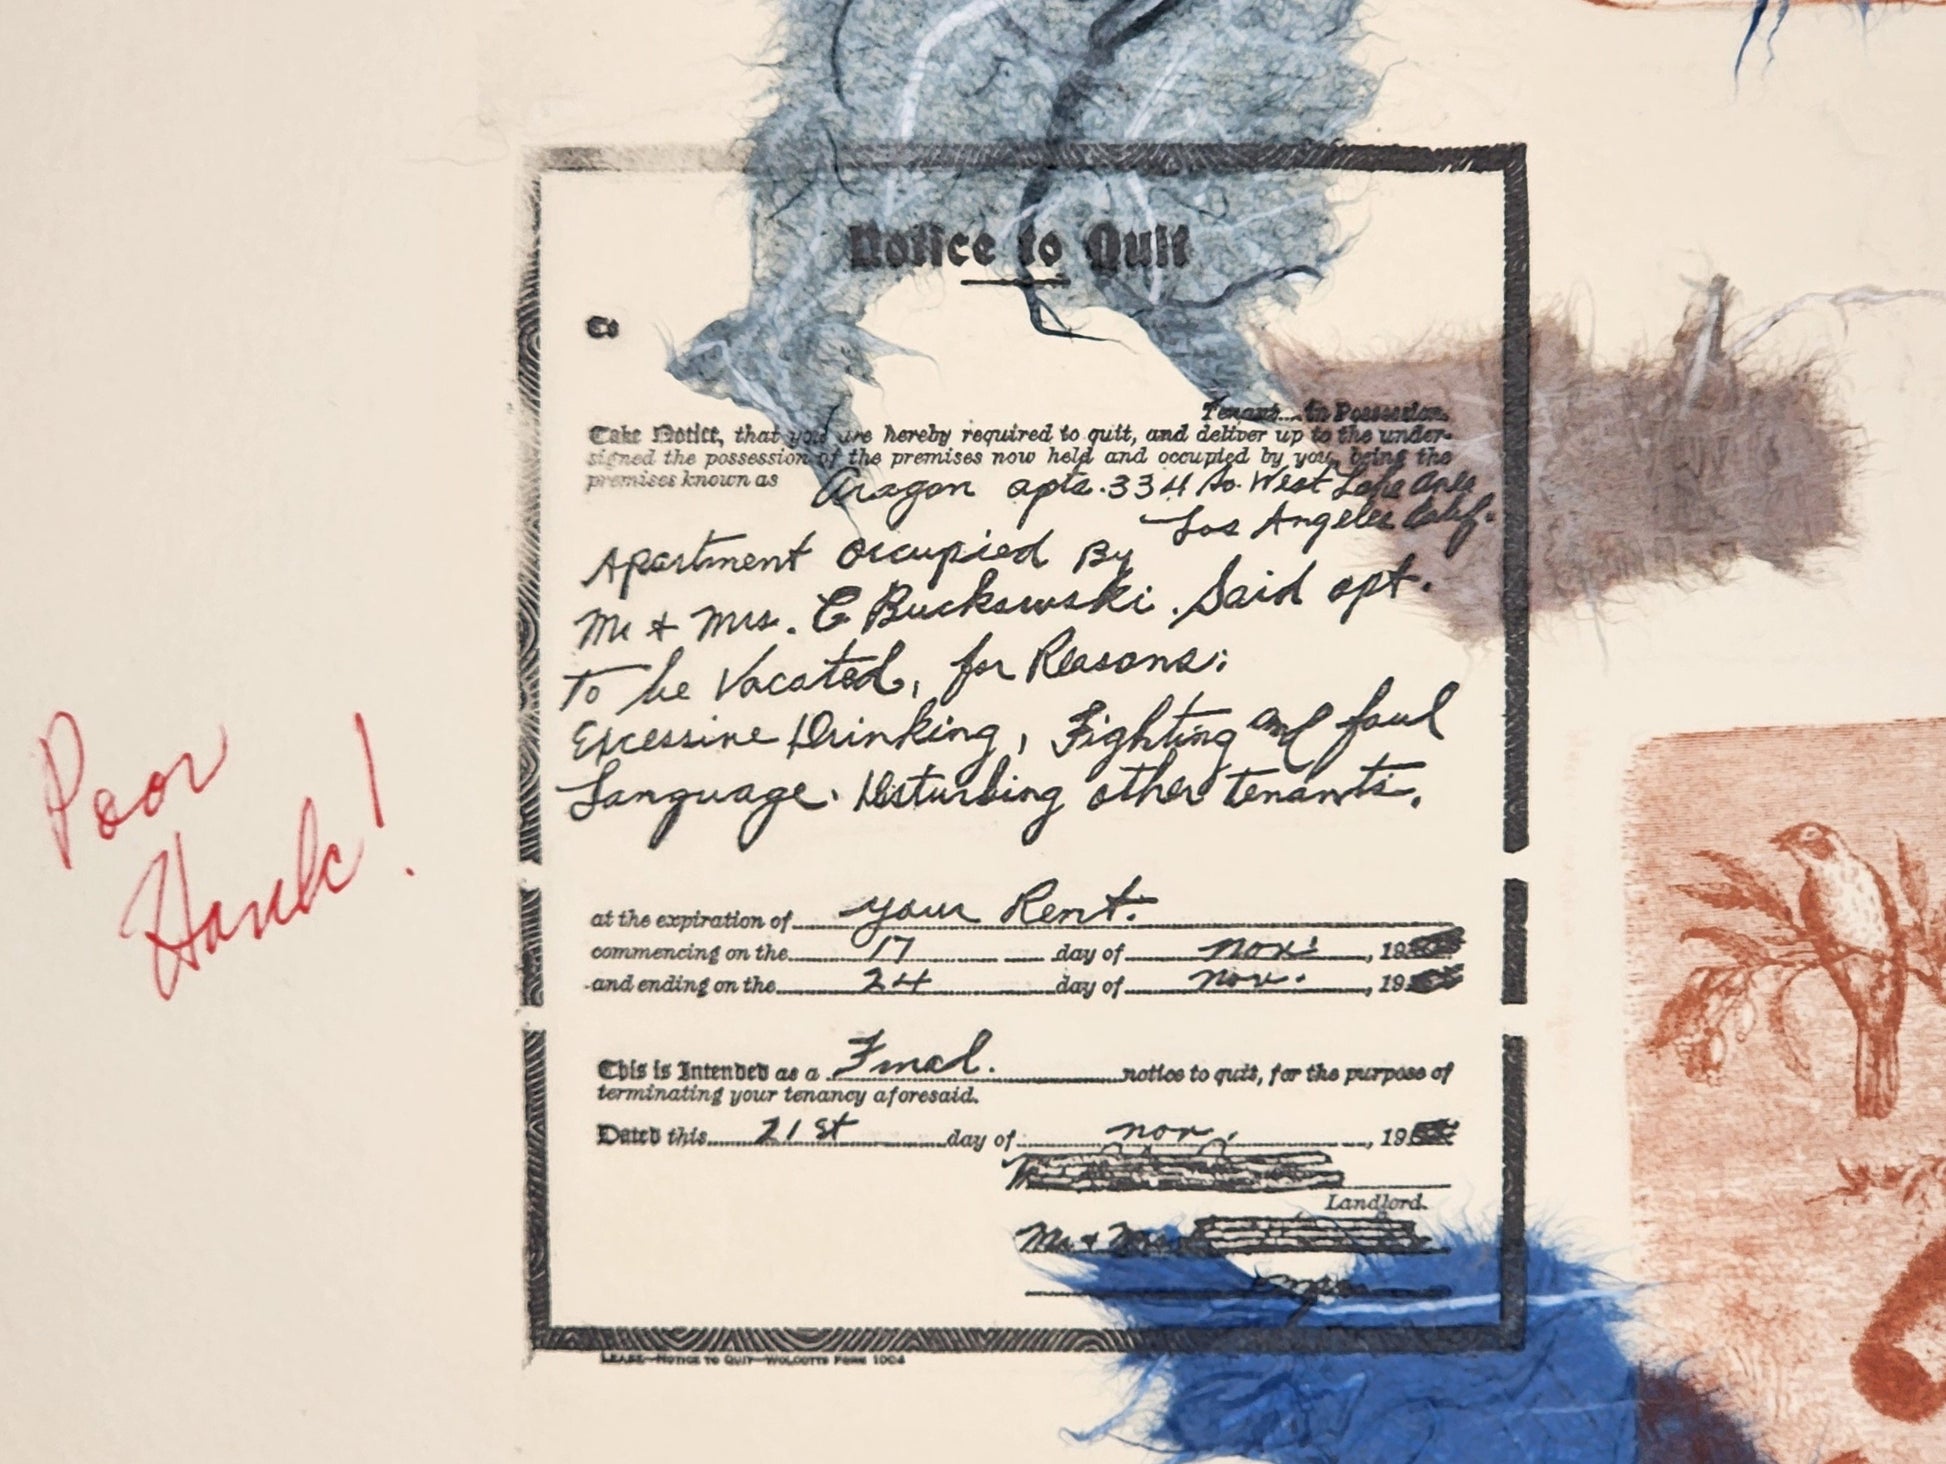 Notice to Quit
To
Tenant....In Possession.
Take Notice, that you are hereby required to quit, and deliver up to the under-
signed the possession of the premises now held and occupied by you, being the
premises known as Aragon apts. 334 So. West Lake Ave
Los Angeles Calif.
Apartment occupied By
Mr & Mrs. C Buckowski. Said apt.
To be Vacated, for Reasons:
Excessive Drinking, Fighting and foul
Language. Disturbing other tenants.
Poor
Hank!
at the expiration of your Rent.
commencing on the 17 day of Nov: , 19
and ending on the 24 day of Nov. , 19
This is Intended as a Final. notice to quit, for the purpose of
terminating your tenancy aforesaid.
Dated this 21st day of Nov. , 19
Landlord.
Mr. & Mrs
LEASE—NOTICE TO QUIT—WOLCOTTS FORM 1004